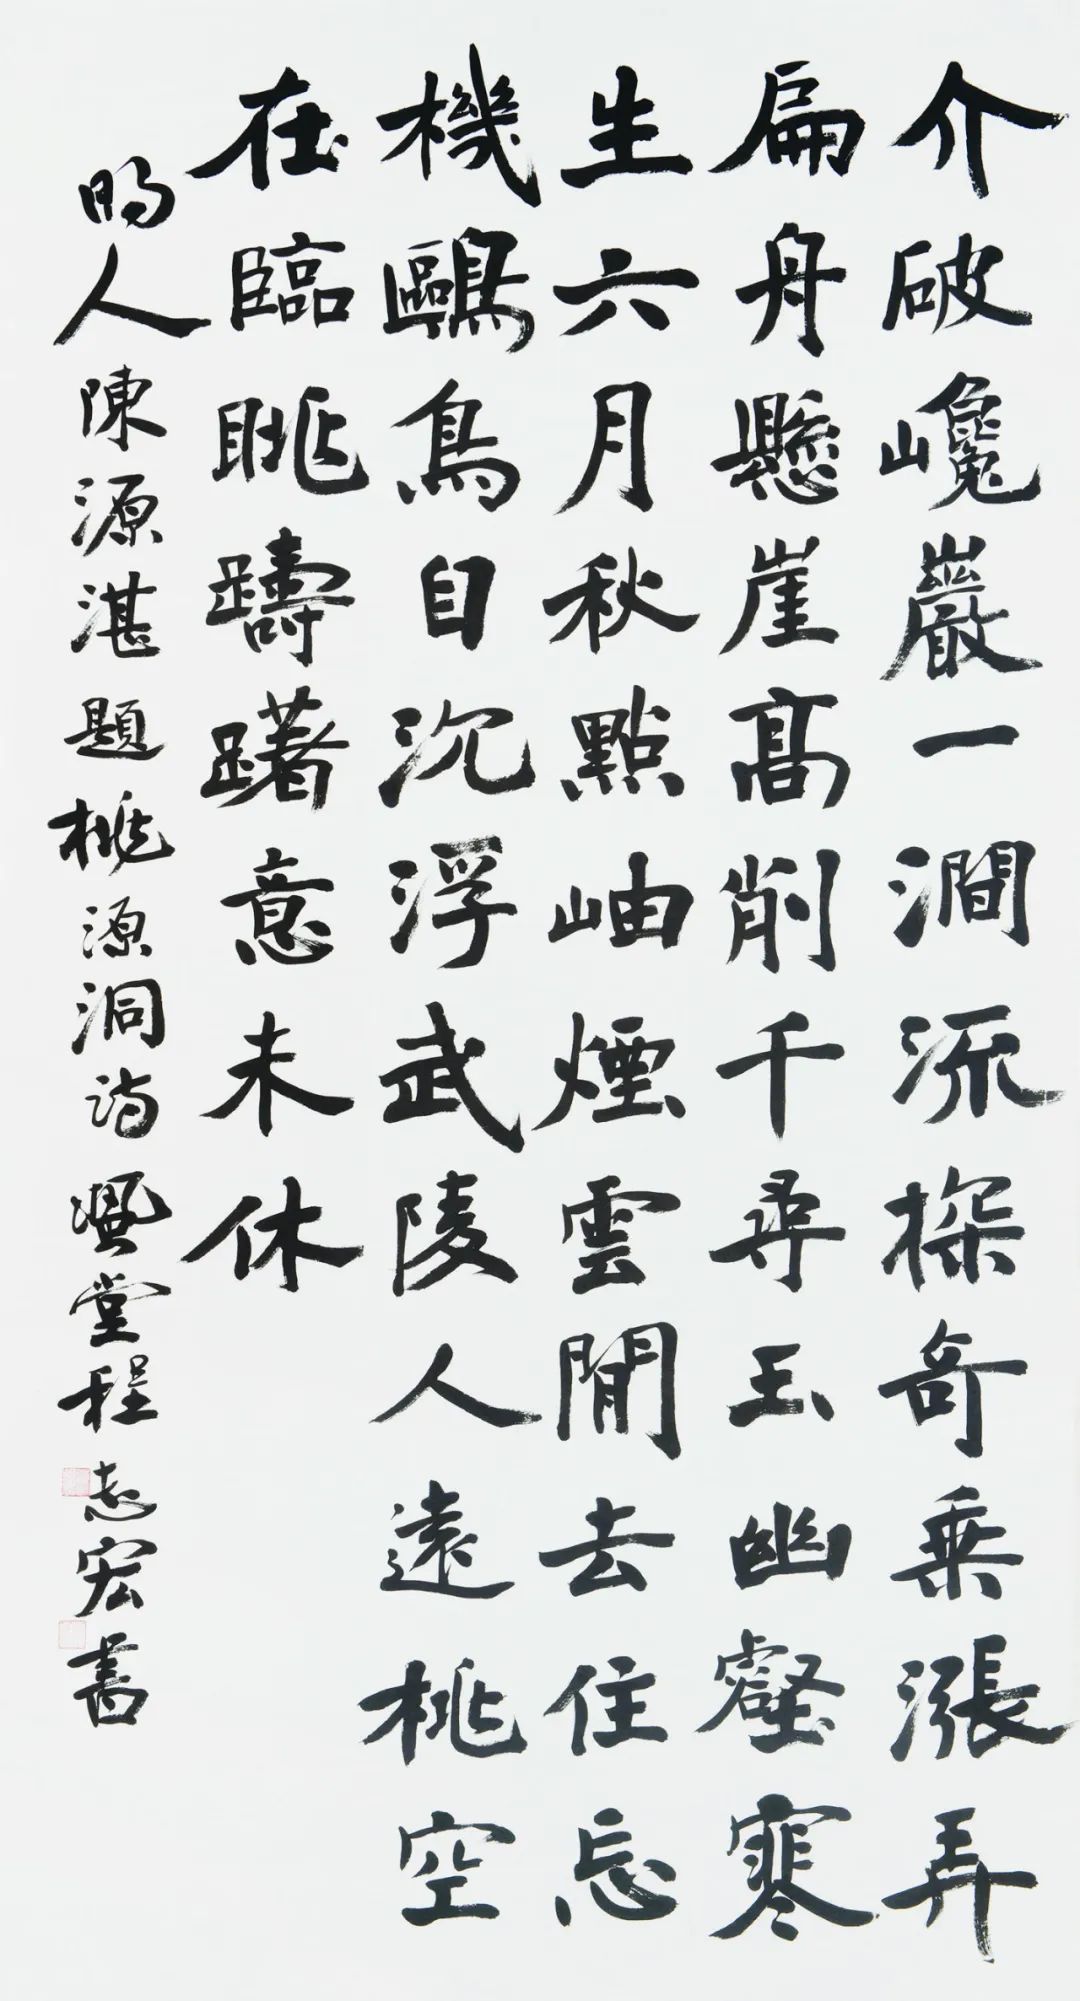 介破巉巖一澗流探奇乗漲弄
扁舟懸崖高削千尋玉幽壑寒
生六月秋點岫煙雲閒去住忘
機鷗鳥自沉浮武陵人遠桃空
在臨眺躊躇意未休
明人陳源湛題桃源洞詩 堂程志宏書